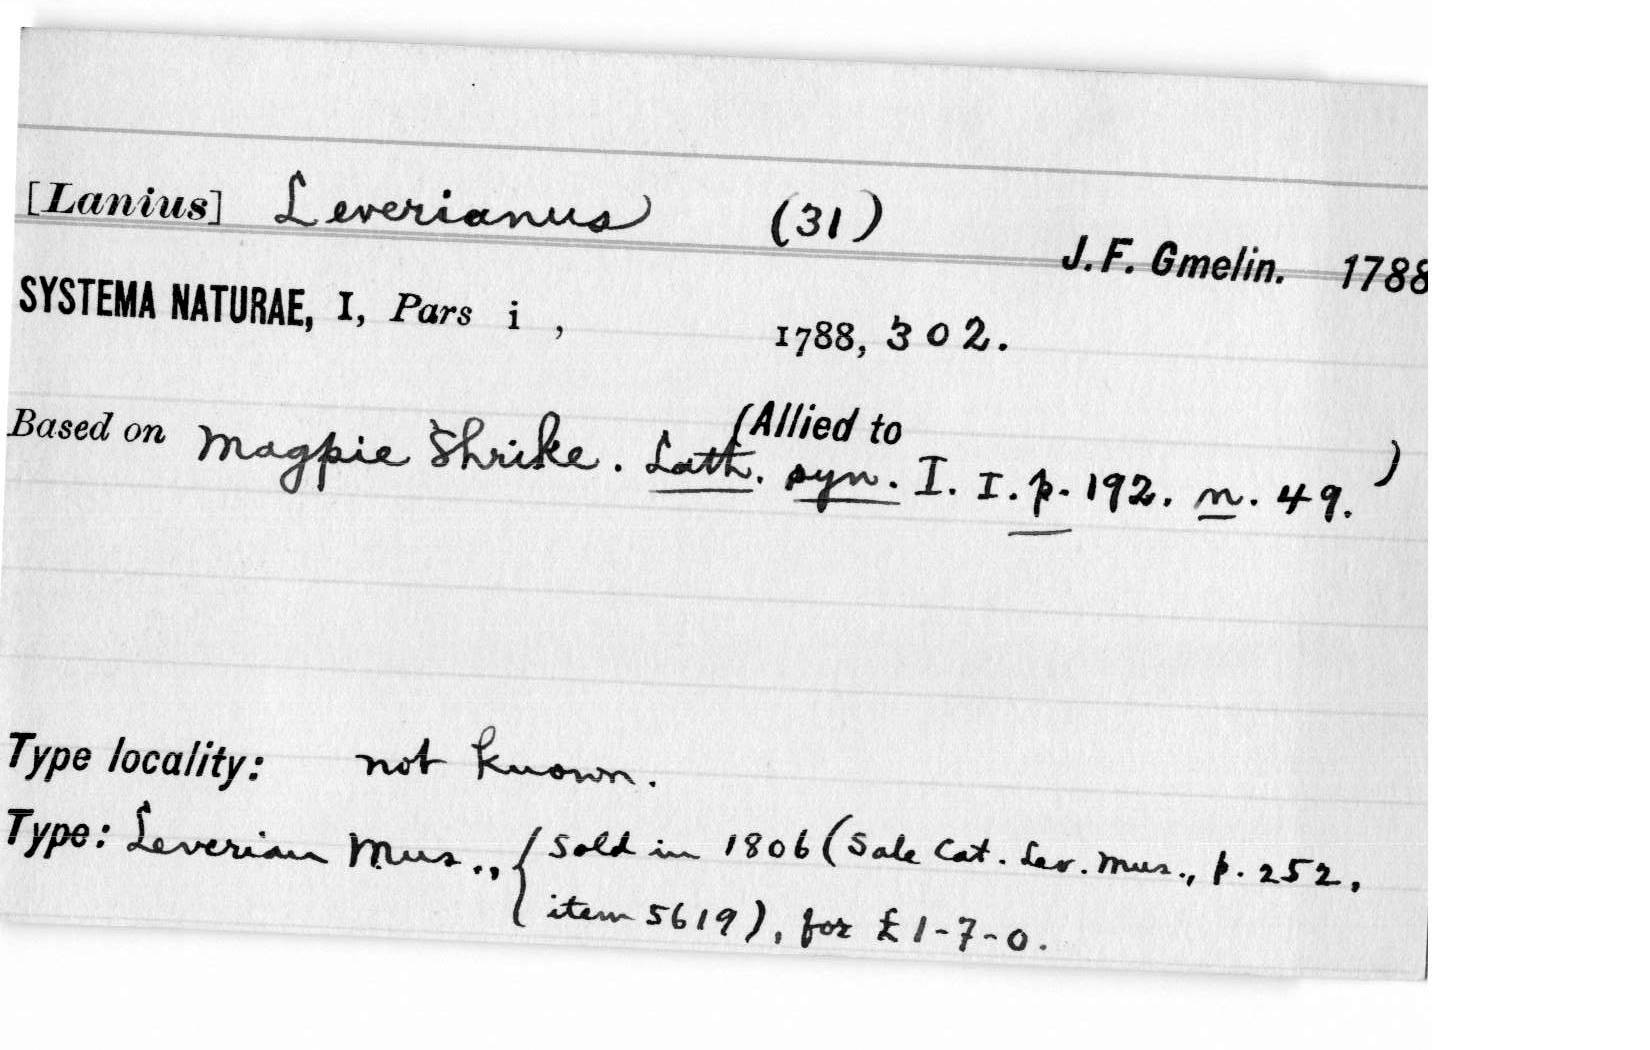 [Lanius] Leverianus (31)
J. F. Gmelin. 1788
SYSTEMA NATURAE, I, Pars i , 1788, 302.
(Allied to
Based on Magpie Shrike. Lath. syn. I. I. p. 192. n. 49. )
Type locality: not known.
Type: Leverian Mus., { Sold in 1806 (Sale Cat. Lev. Mus., p. 252,
item 5619), for £1-7-0.